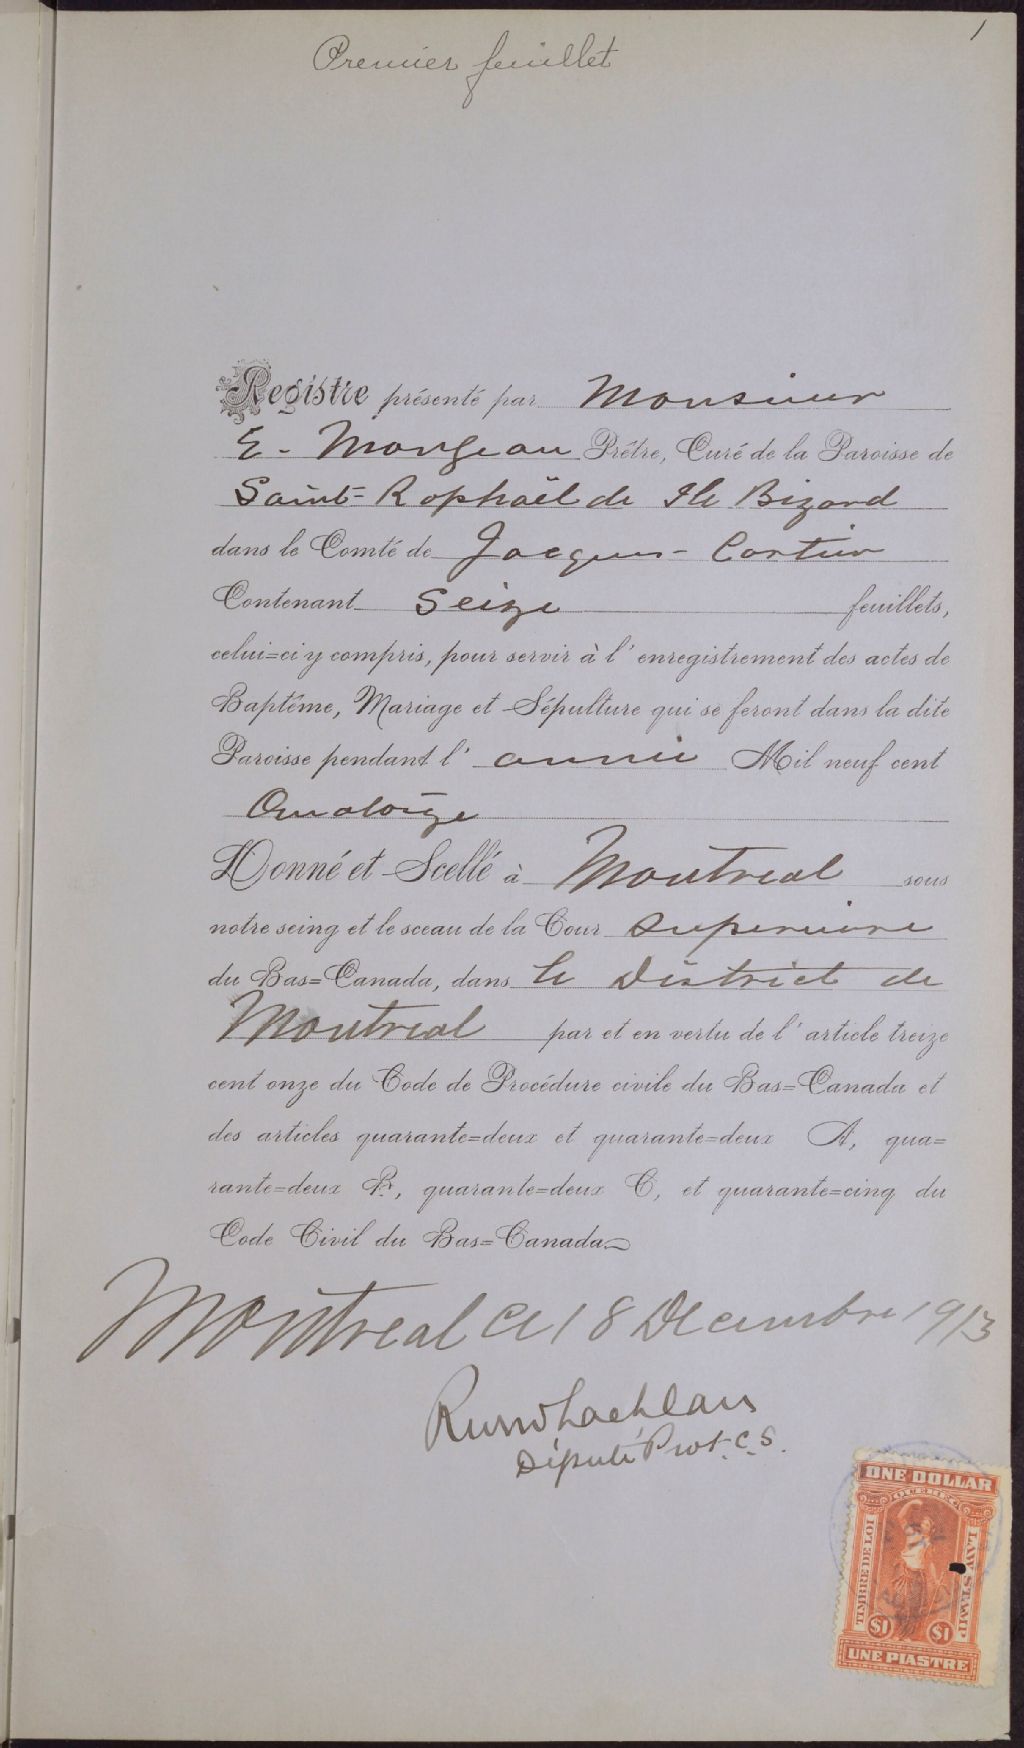 1
Premier feuillet
Registre présenté par Monsieur
E. Mongeau Prêtre, Curé de la Paroisse de
Saint-Raphaël de Ile Bizard
dans le Comté de Jacques-Cartier
Contenant Seize feuillets,
celui=ci y compris, pour servir à l'enregistrement des actes de
Baptême, Mariage et Sépulture qui se feront dans la dite
Paroisse pendant l'année Mil neuf cent
Quatorze
Donné et Scellé à Montreal sous
notre seing et le sceau de la Cour superieure
du Bas=Canada, dans le District de
Montreal par et en vertu de l'article treize
cent onze du Code de Procédure civile du Bas=Canada et
des articles quarante=deux et quarante=deux A, qua=
rante=deux B, quarante=deux C, et quarante=cinq du
Code Civil du Bas=Canada
Montreal ce 18 Decembre 1913
Député Prot. C. S.
ONE DOLLAR
QUEBEC
TIMBRE DE LOI
LAW STAMP
$1 $1
UNE PIASTRE